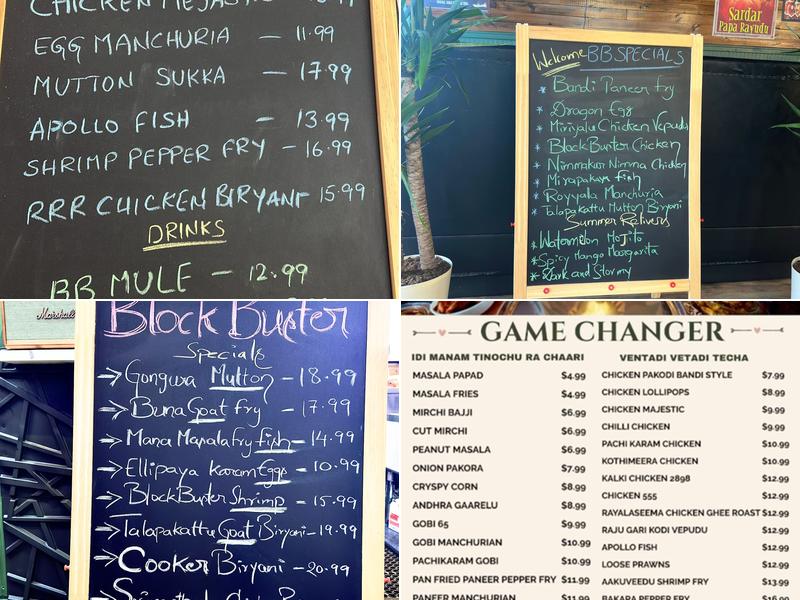 CHICKEN MEJASTIC
EGG MANCHURIA — 11.99
MUTTON SUKKA — 17.99
APOLLO FISH — 13.99
SHRIMP PEPPER FRY — 16.99
RRR CHICKEN BIRYANI 15.99
DRINKS
BB MULE — 12.99
Sardar
Papa Rayudu
Welcome BB SPECIALS
* Bandi Paneer fry
* Dragon Egg
* Miriyalu Chicken Vepudu
* BlockBuster Chicken
* Nimmakur Nimma Chicken
* Mirapakaya fish
* Royyala Manchuria
* Talapakattu Mutton Biryani
Summer Relivers
* Watermelon Mojito
* Spicy Mango Margarita
* Dark and Stormy
Marshall
Block Buster
Specials
→ Gongura Mutton — 18.99
→ Buna Goat fry — 17.99
→ Mana Masala fry fish — 14.99
→ Ellipaya Karam Eggs — 10.99
→ BlockBuster Shrimp — 15.99
→ Talapakattu Goat Biryani — 19.99
→ Cooker Biryani — 20.99
GAME CHANGER
IDI MANAM TINOCHU RA CHAARI
MASALA PAPAD $4.99
MASALA FRIES $4.99
MIRCHI BAJJI $6.99
CUT MIRCHI $6.99
PEANUT MASALA $6.99
ONION PAKORA $7.99
CRYSPY CORN $8.99
ANDHRA GAARELU $8.99
GOBI 65 $9.99
GOBI MANCHURIAN $10.99
PACHIKARAM GOBI $10.99
PAN FRIED PANEER PEPPER FRY $11.99
PANEER MANCHURIAN $11.99
VENTADI VETADI TECHA
CHICKEN PAKODI BANDI STYLE $7.99
CHICKEN LOLLIPOPS $8.99
CHICKEN MAJESTIC $9.99
CHILLI CHICKEN $9.99
PACHI KARAM CHICKEN $10.99
KOTHIMEERA CHICKEN $10.99
KALKI CHICKEN 2898 $12.99
CHICKEN 555 $12.99
RAYALASEEMA CHICKEN GHEE ROAST $12.99
RAJU GARI KODI VEPUDU $12.99
APOLLO FISH $12.99
LOOSE PRAWNS $12.99
AAKUVEEDU SHRIMP FRY $13.99
BAKARA PEPPER FRY $16.99